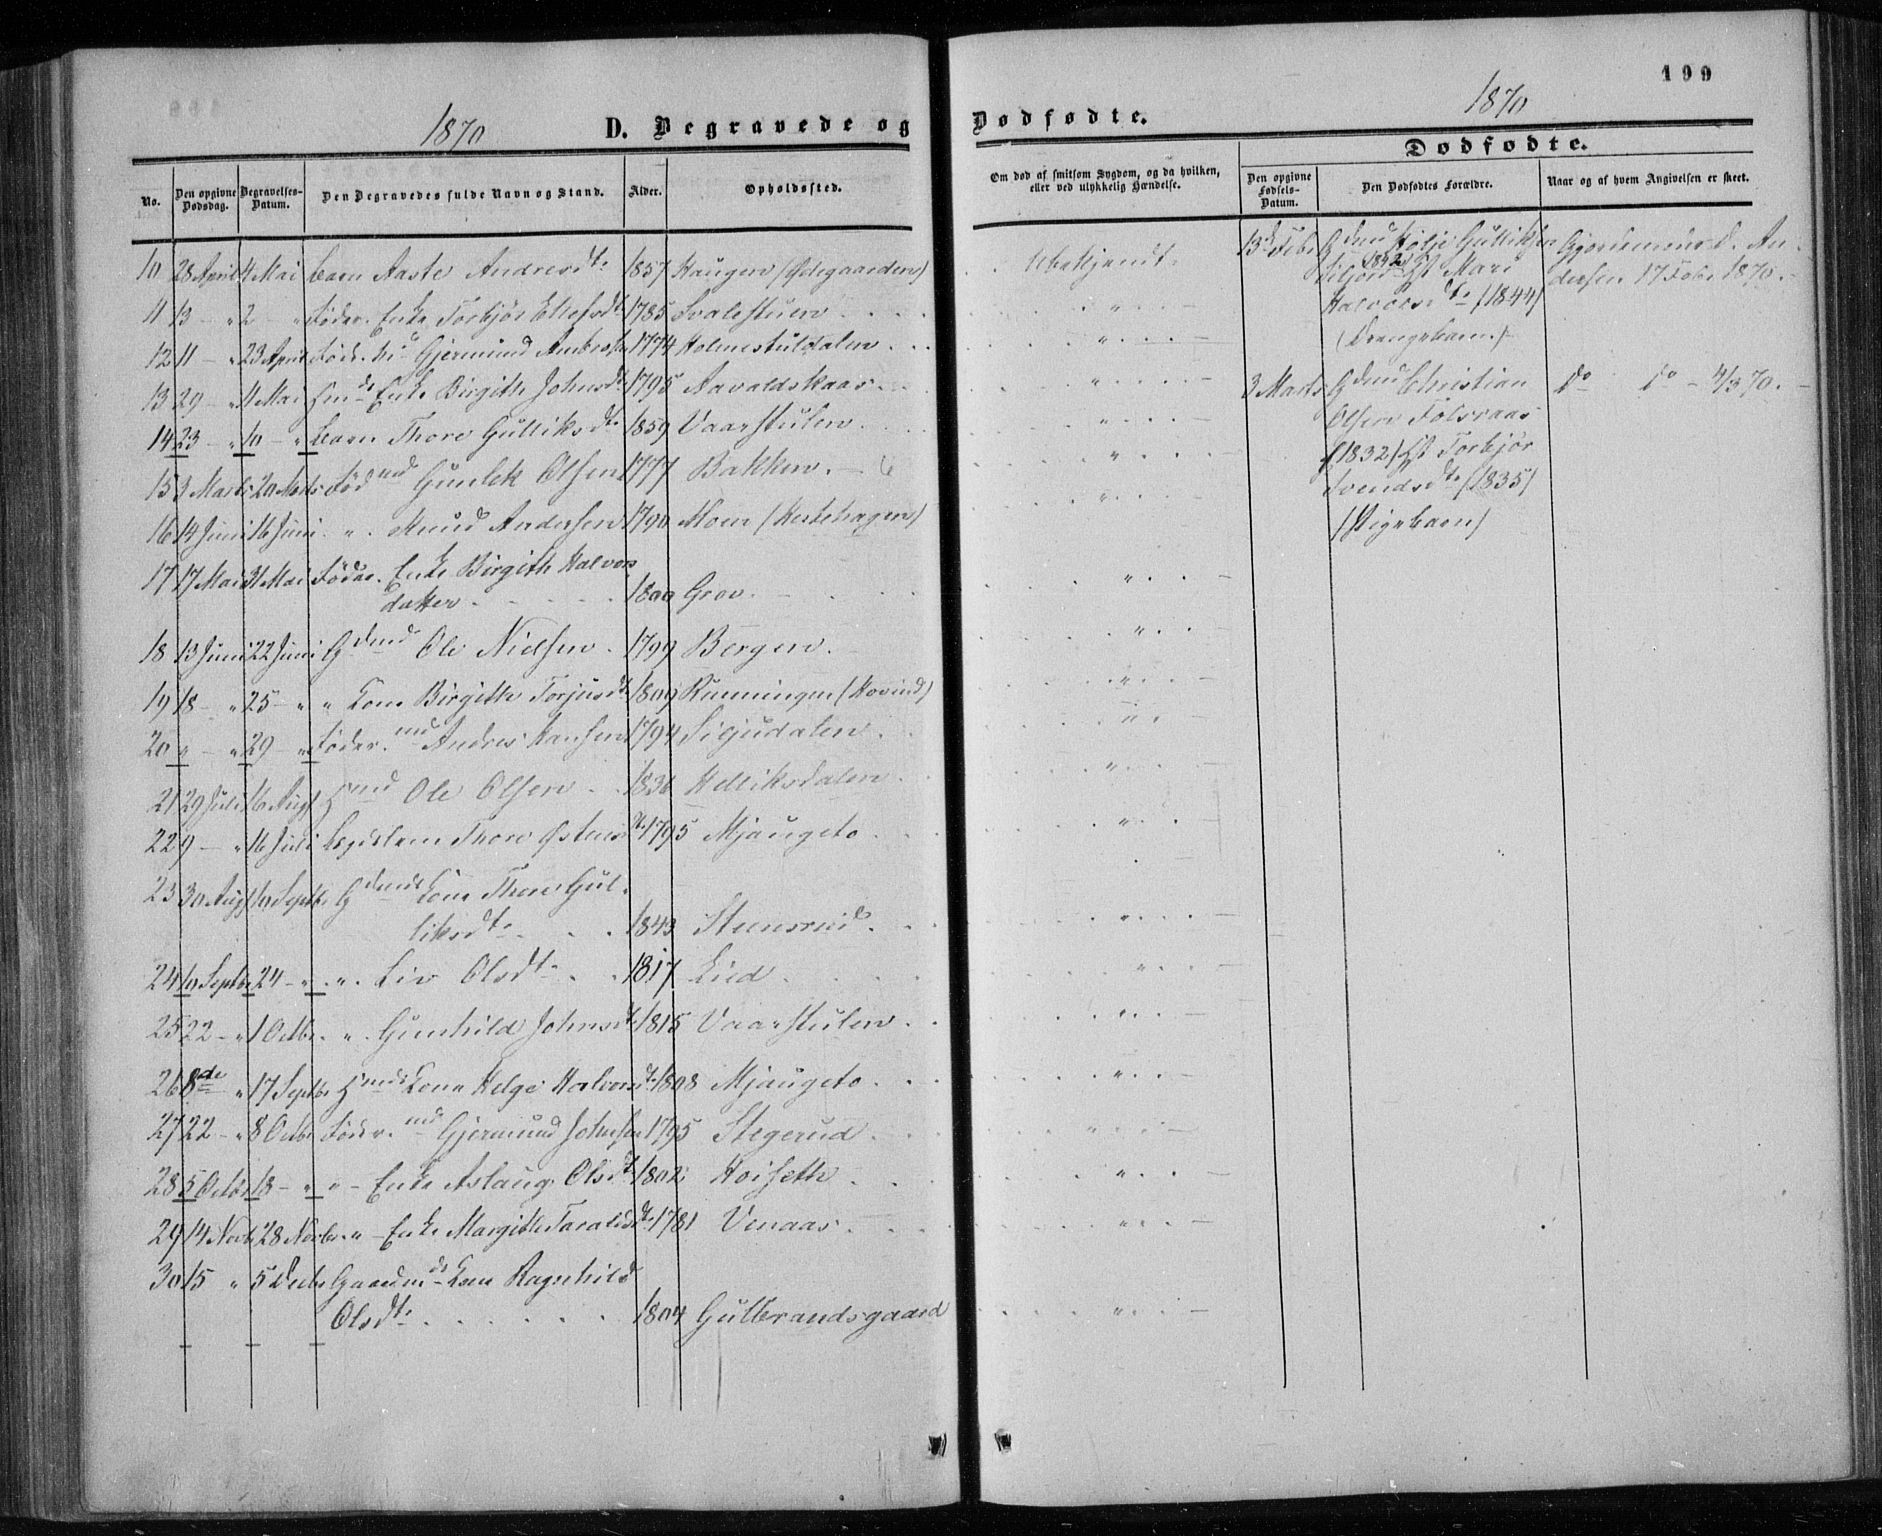 1870
D. Begravede og
No.
Den opgivne Dødsdag.
Begravelses-Datum.
Den Begravedes fulde Navn og Stand.
Alder.
Opholdssted.
10 28 April 4 Mai barn Aaste Andresdtr 1857 Haugen (Ødegaarden)
11 13 - " 2 - " Føder. Enke Torbjør Ellefsdtr 1785 Svalestuen
12 11 - " 23 April Føder. Gjermund 1774 Holmestuldalen
13 29 - " 4 Mai Enke Birgith Johnsdtr 1795 Aavaldskaas
14 23 - " 10 - " barn Thore Gulliksdtr 1859 Vaarstulen
15 3 Marts 20 Marts Fød Gunlek Olsen 1777 Bakken
16 14 Juni 16 Juni " Knud Andersen 1790 Moen (Kostehagen)
17 17 Mai 31 Mai Føder. Enke Birgith Halvors
datter 1800 Grov
18 13 Juni 22 Juni Gdmd Ole Nielsen 1799 Bergen
19 18 - " 25 - " " Kone Birgithe Torjusdtr 1809 Runningen (Hovind)
20 " - " 29 - " Føder. md Andres Hansen 1794 Sigudalen
21 29 Juli 16 Augst Hmd Ole Olsen 1836 Helliksdalen
22 9 - " 16 Juli Legdslem Thore Østensdtr 1795 Mjaugeto
23 30 Augst 10 Septbr Gdmds Kone Thore Gul-
liksdtr 1843 Steensrud
24 10 Septbr 24 - " " Liv Olsdtr 1817 Lied
25 22 - " 1 Octbr " Gunhild Johnsdtr 1815 Vaarstulen
26 8de " 17 Septbr Hmds Kone Helge Halvorsdtr 1808 Mjaugeto
27 22 - " 8 Octbr Føder. md Gjermund Johnsen 1795 Stegerud
28 5 Octbr 18 - " " - Enke Aslaug Olsdtr 1802 Hoiseth
29 14 Novbr 28 Novbr " - Enke Margithe Taraldsdtr 1781 Venaas
30 15 " 5 Decbr Gaardmds Kone Ragnhild
Olsdtr 1804 Gulbrandsgaard
199
1870
Dødfødte.
Dødfødte.
Om død af smitsom Sygdom, og da hvilken, eller ved ulykkelig Hændelse.
Den opgivne Fødsels-Datum.
Den Dødfødtes Forældre.
Naar og af hvem Angivelsen er skeet.
Ubekjendt
13de Febr Gdmd Hølje Gulliksen
(1842) Mari
Halvorsdtr (1844)
(Drengebarn)
Gjordemoder D. An-
dersen 17 Febr 1870.
3 Marts Gdmd Christian
Olsen Folseraas
(1832) Torbjør
Svendsdtr (1835)
(Pigebarn)
do do - 4/3 70.